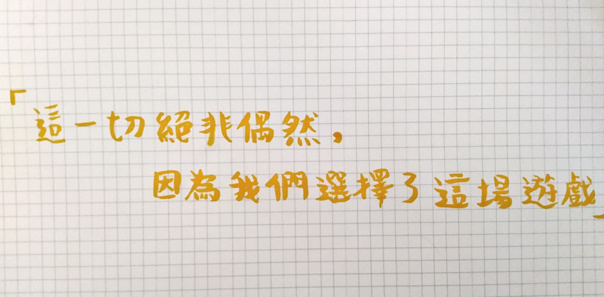 「這一切絕非偶然，
因為我們選擇了這場遊戲」